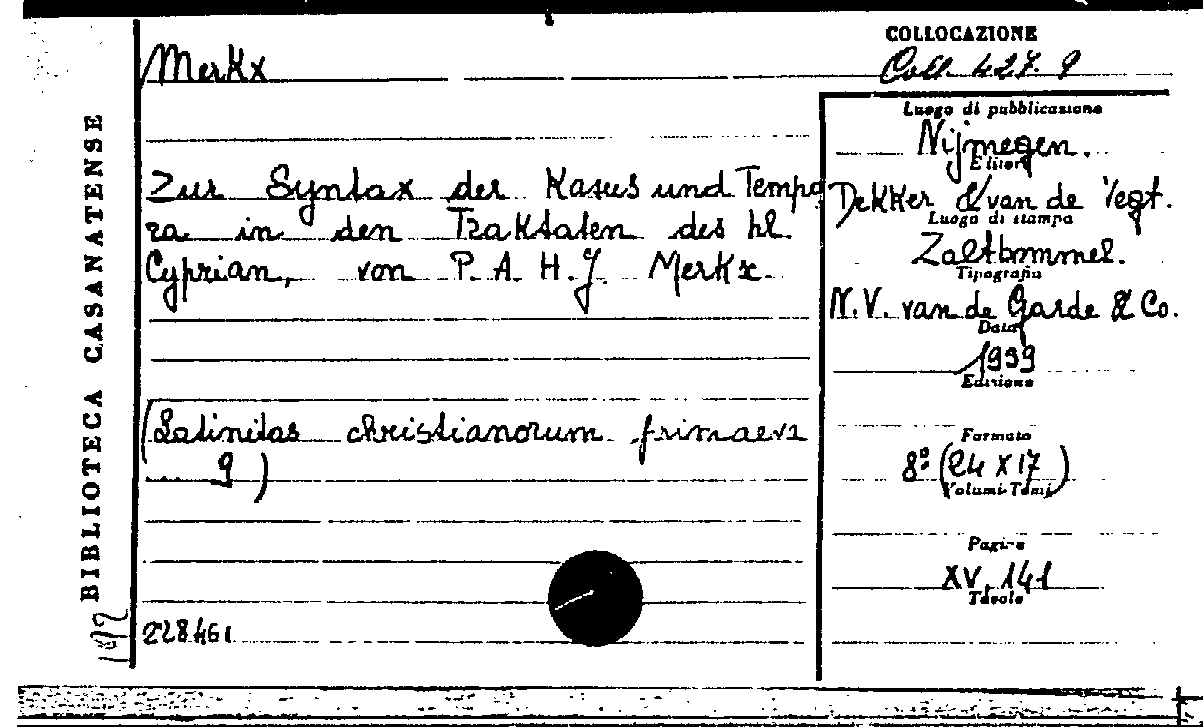 COLLOCAZIONE
Merkx
Coll. 427. 9
BIBLIOTECA CASANATENSE
Zur Syntax der Kasus und Tempo
ra in den Traktaten des hl.
Cyprian, von P. A. H. J. Merkx.
(Latinitas christianorum primaeva
9)
228461
Luogo di pubblicazione
Nijmegen.
Editore
Dekker & van de Vegt.
Luogo di stampa
Zaltbommel.
Tipografia
N. V. van de Garde & Co.
Data
1939
Edizione
Formato
8º (24 X 17)
Volumi-Tomi
Pagine
XV, 141
Tavole